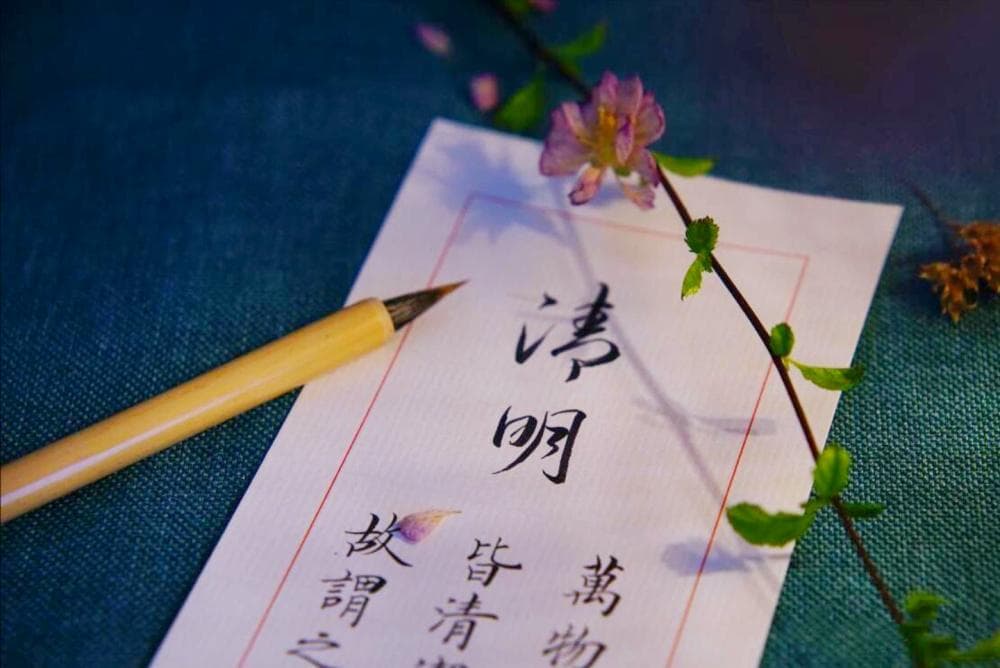 清明
萬物
皆清
故謂之